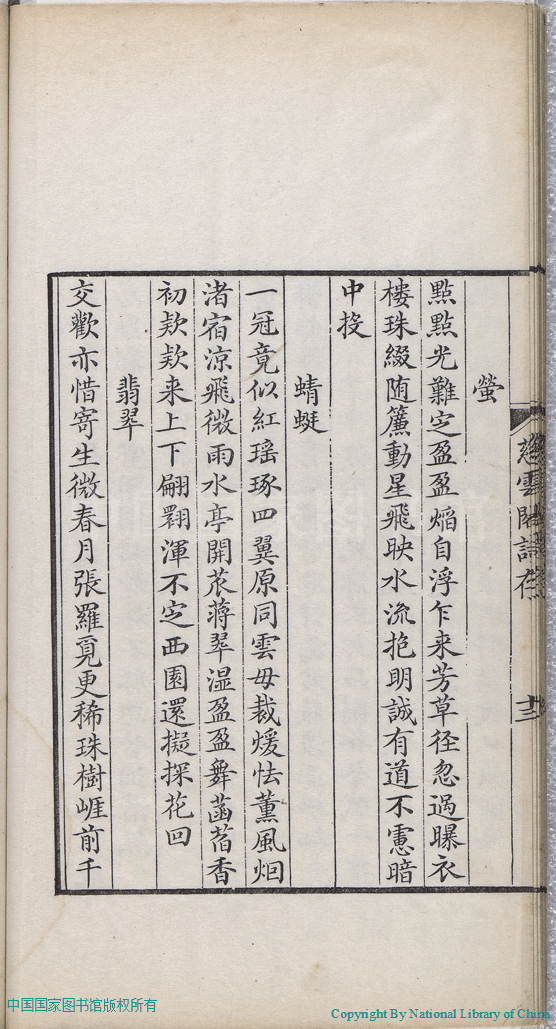 螢
點點光難定盈盈焰自浮乍来芳草徑忽過曝衣
楼珠綴随簾動星飛映水流抱明誠有道不慮暗
中投
蜻蜓
一冠竟似紅瑶琢四翼原同雲母裁煖怯薰風烟
渚宿涼飛微雨水亭開菰蒋翠湿盈盈舞菡萏香
初欵欵来上下翩翾渾不定西園還擬探花回
翡翠
交歡亦惜寄生微春月張羅覓更稀珠樹崕前千
慈雲閣詩存
十三
中国国家图书馆版权所有
Copyright By National Library of China